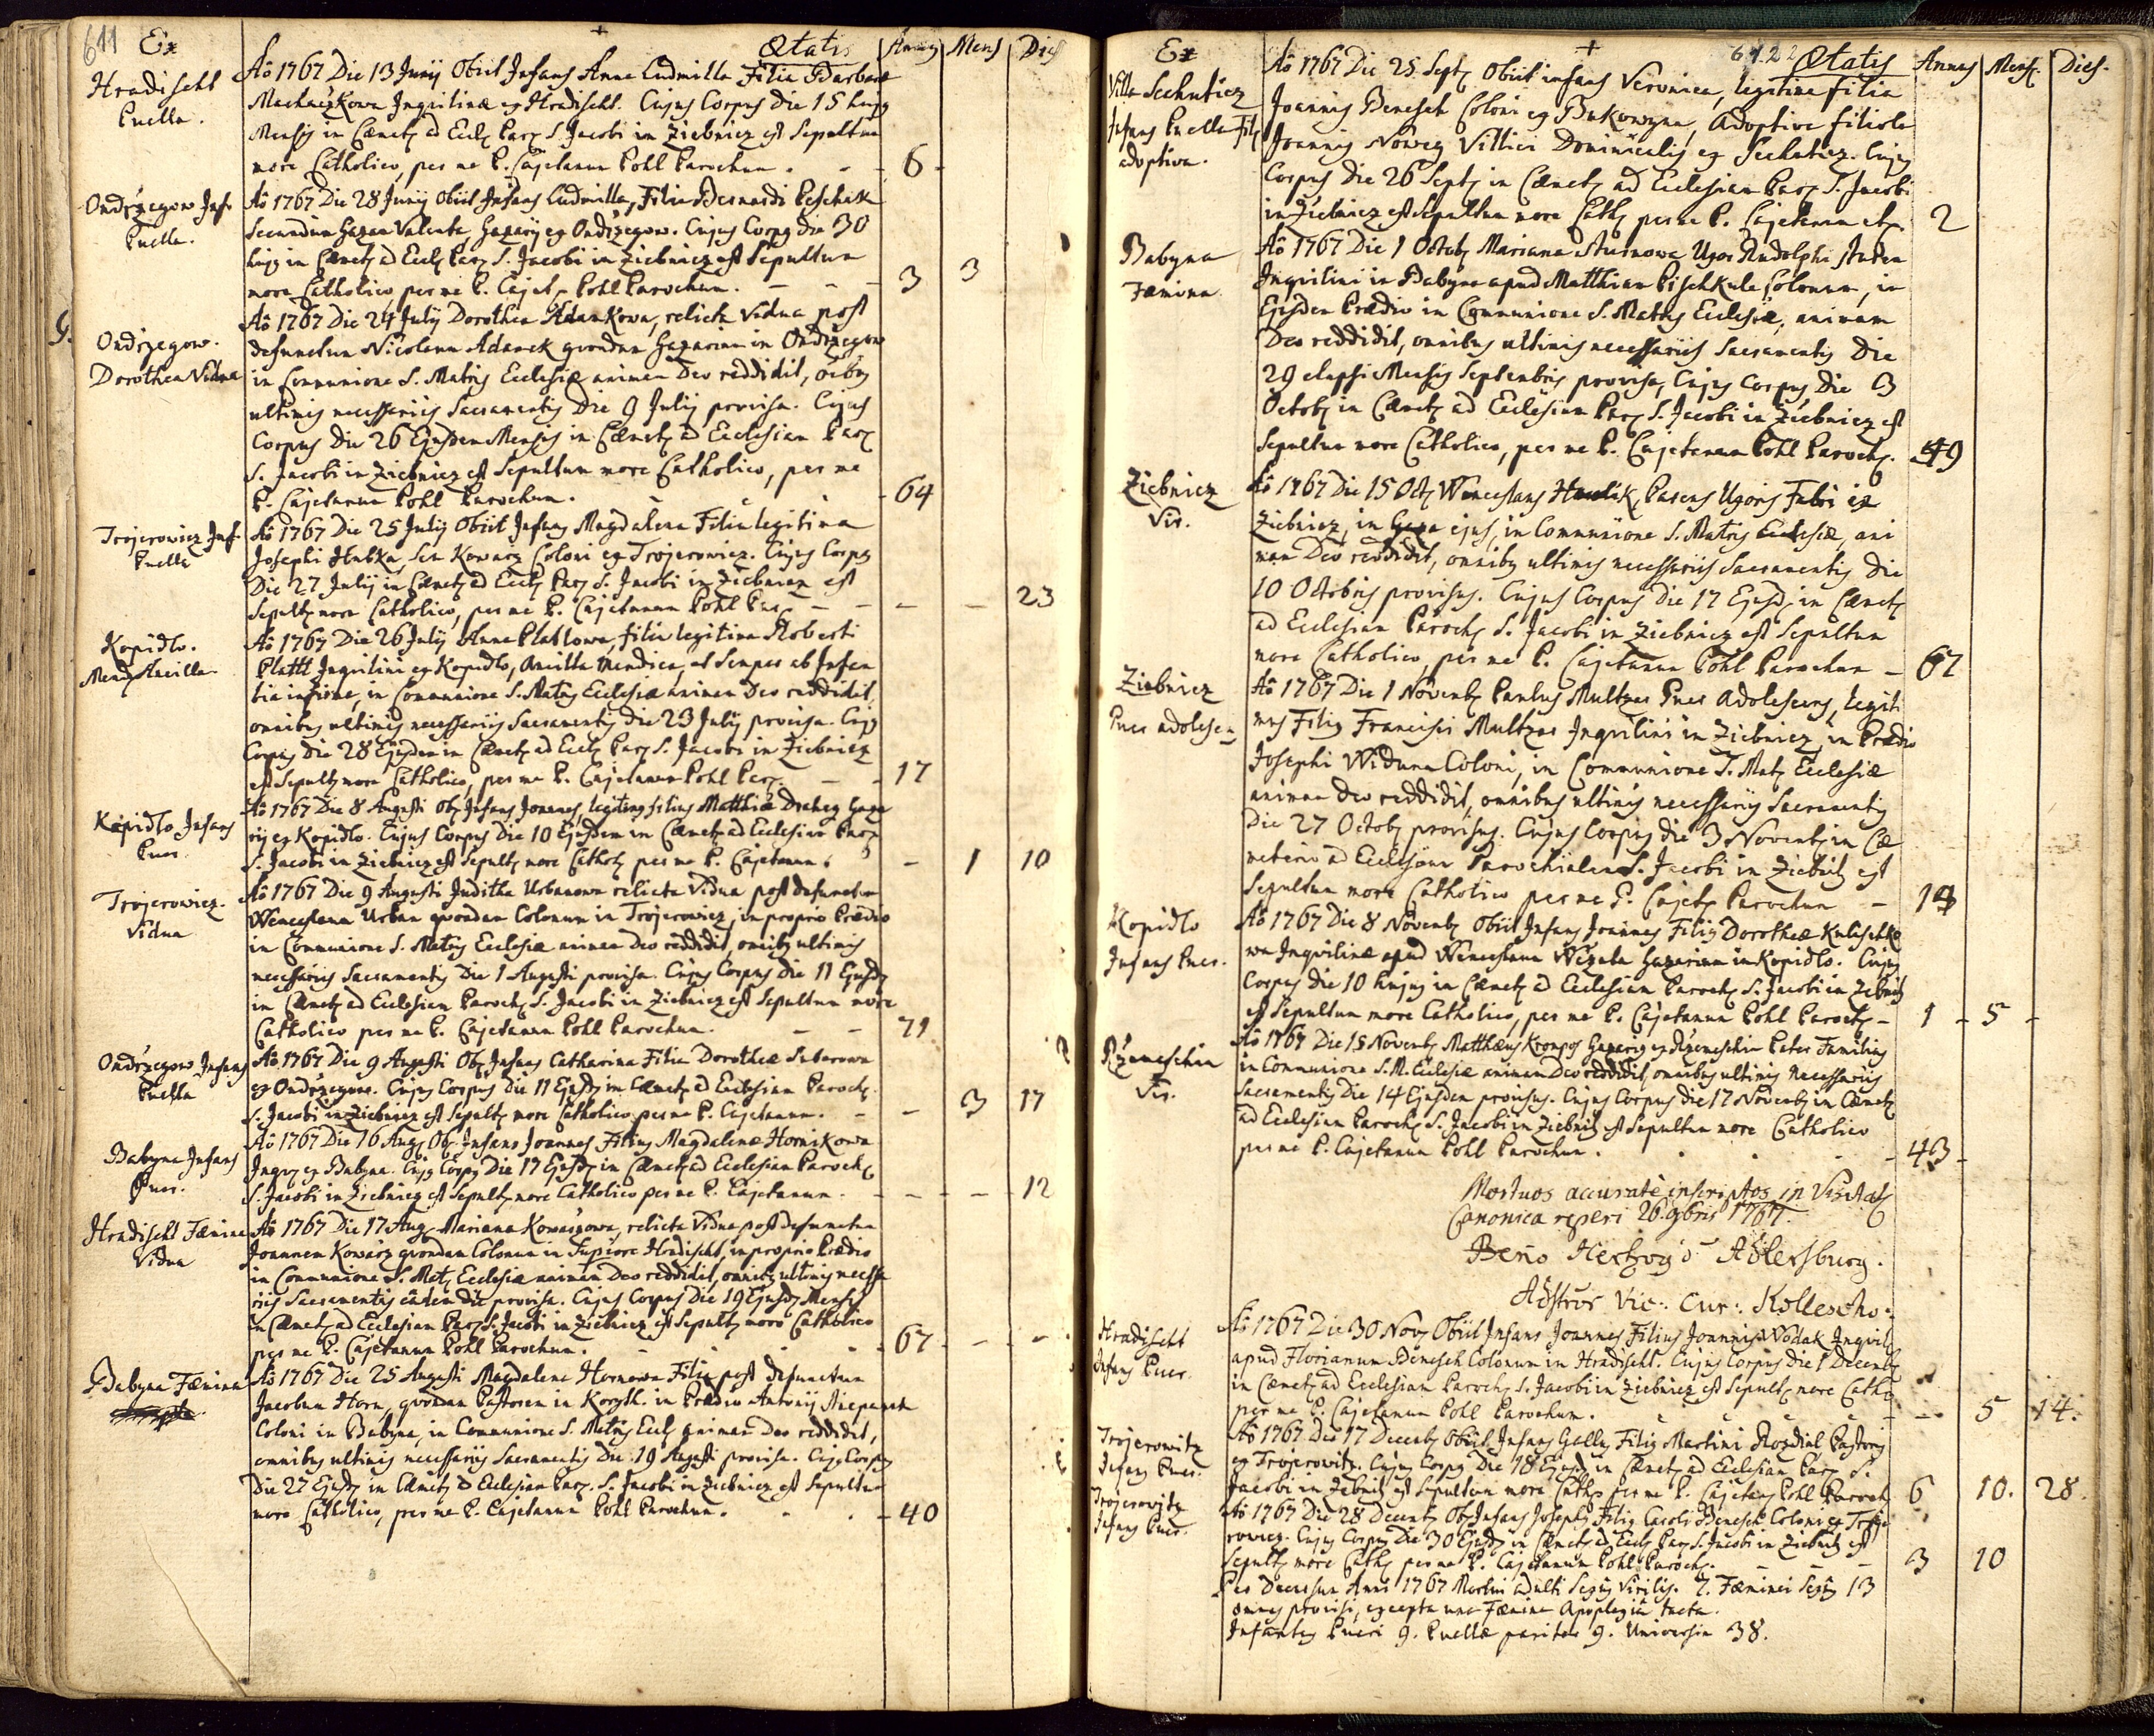 611
Ex
Ætatis
Annus
Mens
Dies
Hradischt
Puella.
Aô 1767 Die 13 Junÿ Obiit Infans Anna Ludmilla Filia Barbaræ
Inquilinæ ex Hradischt. Cujus Corpus Die 15 hujg
Mensis in Cæmet ad Eccl Par S. Jacobi in Ziebnicz est Sepultum
more Catholico, per me P. Cajetanum Pohl Parochum.
6
Ondrzegow Inf
Puella.
Aô 1767 Die 28 Junÿ Obiit Infans Ludmilla, Filia Bernardi Peschak
Secundum Gazam Valenta Gazarÿ ex Ondrzegow. Cujus Corpg die 30
hujg in Cæmet ad Eccl Par S. Jacobi in Ziebnicz est Sepultum
more Catholico, per me P. Cajet Pohl Parochum.
3 3
Ondrzegow.
Dorothea Vidua
Aô 1767 Die 24 Julÿ Dorothea Adamkowa, relicta Vidua post
defunctum Nicolaum Adamek quondam Gazarium in Ondrzegow
in Communione S. Matris Ecclesiæ animam Deo reddidit, oibus
ultimis necessariis Sacramentis Die 9 Julÿ provisa. Cujus
Corpus Die 26 Ejusdem Mensis in Cæmet ad Ecclesiam Par
S. Jacobi in Ziebnicz est Sepultum more Catholico, per me
P. Cajetanum Pohl Parochum.
64
Trojerowicz Inf.
Puella
Aô 1767 Die 25 Julÿ Obiit Infans Magdalena Filia legitima
Josephi Hubka, Seu Kowarz Coloni ex Trojerowicz. Cujus Corpg
Die 27 Julÿ in Cæmet ad Eccl Par S. Jacobi in Ziebnicz est
Sepult more Catholico, per me P. Cajetanum Pohl Par
23
Kopidlo.
Mend Ancilla
Aô 1767 Die 26 Julÿ Anna Plattowa, filia legitima Roberti
Plattt Inquilini ex Kopidlo, Ancilla Mendica, et Semper ab Infan
tia infirma, in Communione S. Matris Ecclesiæ animam Deo reddidit,
omnibus ultimis necessariis Sacramentis die 23 Julÿ provisa. Cujg
Corpus Die 28 Ejusdem in Cæmet ad Eccl Par S. Jacobi in Ziebnicz
est Sepult more Catholico, per me P. Cajetanum Pohl Par
17
Kopidlo Infans
Puer.
Aô 1767 Die 8 Augusti Ob Infans Joannes, legitimg filius Matthiæ Gaza
rÿ ex Kopidlo. Cujus Corpus Die 10 Ejusdem in Cæmet ad Ecclesiam Par
S. Jacobi in Ziebnicz est Sepult more Cathol per me P. Cajetanum.
1 10
Trojerowicz.
Vidua
Aô 1767 Die 9 Augusti Juditha Urbanowa relicta Vidua post defunctum
Wenceslaum Urban quondam Colonum in Trojerowicz, in proprio Prædio
in Communione S. Matris Ecclesiæ animam Deo reddidit, omnib ultimis
necessariis Sacramentis Die 1 Augusti provisa. Cujus Corpus Die 11 Ejusd
in Cæmet ad Ecclesiam Paroch S. Jacobi in Ziebnicz est Sepultum more
Catholico per me P. Cajetanum Pohl Parochum.
71
Ondrzegow Infans
Puella
Aô 1767 Die 9 Augusti Ob Infans Catharina Filia Dorotheæ
ex Ondrzegow. Cujus Corpus Die 11 Ejusd in Cæmet ad Ecclesiam Paroch
S. Jacobi in Ziebnicz est Sepult more Catholico per me P. Cajetanum.
3 17
Babyna Infans
Puer.
Aô 1767 Die 16 Aug Ob Infans Joannes Filius Magdalenæ Hornikowa
Inquil ex Babyna. Cujg Corpg Die 17 Ejusd in Cæmet ad Ecclesiam Paroch
S. Jacobi in Ziebnicz est Sepult more Catholico per me P. Cajetanum.
12
Hradischt Fæmina
Vidua
Aô 1767 Die 17 Aug Mariana Kowarzowa, relicta Vidua post defunctum
Joannem Kowarz quondam Colonum in Superiore Hradischt, in proprio Prædio
in Communione S. Mat Ecclesiæ animam Deo reddidit, omnib ultimis necessa
riis Sacramentis eâdem die provisa. Cujus Corpus Die 19 Ejusd Mensis
in Cæmet ad Ecclesiam Par S. Jacobi in Ziebnicz est Sepult more Catholico
per me P. Cajetanum Pohl Parochum.
67
Babyna Fæmina
Aô 1767 Die 25 Augusti Magdalena Hornowa Filia post defunctum
Jacobum Horn, quondam Pastorem in in Prædio Antonÿ
Coloni in Babyna, in Communione S. Matris Eccl animam Deo reddidit,
omnibus ultimis necessariis Sacramentis Die 19 Augusti provisa. Cujg Corpg
Die 27 Ejusd in Cæmet ad Ecclesiam Par S. Jacobi in Ziebnicz est Sepultum
more Catholico, per me P. Cajetanum Pohl Parochum.
40
612
Ex
Ætatis
Annus
Mens.
Dies.
Villa Sechuticz
Infans Puella Fil
adoptiva.
Aô 1767 Die 25 Sept Obiit infans Veronica, legitima filia
Joannis Benesch Coloni ex Bukowyna, Adoptiva filiola
Joannis Nowey Villici Dominicalis ex Sechuticz. Cujus
Corpus Die 26 Sept in Cæmet ad Ecclesiam Par S. Jacobi
in Ziebnicz est Sepultum more Cath per me P. Cajetanum etc.
2
Babyna
Fæmina
Aô 1767 Die 1 Octob Mariana Sturmowa Uxor Rudolphi Sturm
Inquilini in Babyna apud Matthiam Pischkula Colonum, in
Ejusdem Prædio in Communione S. Matris Ecclesiæ, animam
Deo reddidit, omnibus ultimis necessariis Sacramentis Die
29 elapsi Mensis Septembris provisa, Cujus Corpus Die 3
Octob in Cæmet ad Ecclesiam Par S. Jacobi in Ziebnicz est
Sepultum more Catholico, per me P. Cajetanum Pohl Paroch.
49
Ziebnicz
Vir.
Aô 1767 Die 15 Oct Wenceslaus Hawlik, Parens Uxoris Fabri ex
Ziebnicz, in Gaza ejus, in Communione S. Matris Ecclesiæ, ani
mam Deo reddidit, omnibus ultimis necessariis Sacramentis Die
10 Octobris provisus. Cujus Corpus Die 17 Ejusd in Cæmet
ad Ecclesiam Paroch S. Jacobi in Ziebnicz est Sepultum
more Catholico, per me P. Cajetanum Pohl Parochum
67
Ziebnicz
Puer adolescens
Aô 1767 Die 1 Novemb Paulus Multzer Puer Adolescens, legiti
mus Filig Francisci Multzer Inquilini in Ziebnicz, in Prædio
Josephi Widuna Coloni, in Communione S. Mat Ecclesiæ
animam Deo reddidit, omnibus ultimis necessariis Sacramentis
Die 27 Octob provisus. Cujus Corpus die 3 Novemb in Cæ
meterio ad Ecclesiam Parochialem S. Jacobi in Ziebnitz est
Sepultum more Catholico per me P. Cajet Parochum
Kopidlo
Infans Puer.
Aô 1767 Die 8 Novemb Obiit Infans Joannes Filig Dorotheæ Kuleschko
wa Inquilinæ apud Wenceslaum Gazarium in Kopidlo. Cujus
Corpus die 10 hujus in Cæmet ad Ecclesiam Paroch S. Jacobi in Zebnitz
est Sepultum more Catholico, per me P. Cajetanum Pohl Paroch
1 5
Rzemeschin
Vir.
Aô 1767 Die 15 Novemb Matthæus Kronpos Gazarig ex Rzemeschin Pater Familias
in Communione S. M. Ecclesiæ animam Deo reddidit, omnibus ultimis Necessariis
Sacramentis Die 14 Ejusdem provisus. Cujus Corpus die 17 Novemb in Cæmet
ad Ecclesiam Paroch S. Jacobi in Ziebnitz est Sepultum more Catholico
per me P. Cajetanum Pohl Parochum.
43
Mortuos accuratè inscriptos in Visitat
Canonica reperi 26. 9bris 1767.
Beno Hertzog d' Adlersburg.
Adstror Vic: Cur: Kollescho.
Hradischt
Infans Puer.
Aô 1767 Die 30 Nov Obiit Infans Joannes Filius Joannis Wodak Inquil
apud Florianum Benesch Colonum in Hradischt. Cujus Corpus Die 1 Decemb
in Cæmet ad Ecclesiam Paroch S. Jacobi in Ziebnicz est Sepult more Catho
per me P. Cajetanum Pohl Parochum.
5 14.
Trojerowitz
Infans Puer.
Aô 1767 Die 17 Decemb Obiit Infans Gallg Filig Martini Rozdial Pastoris
ex Trojerowitz. Cujus Corpg Die 18 Ejusd in Cæmet ad Ecclesiam Par S.
Jacobi in Zebnitz est Sepultum more Catho per me P. Cajetan Pohl Paroch
6 10. 28.
Trojerowitz
Infans Puer.
Aô 1767 Die 28 Decemb Ob Infans Josephg Filig Caroli Benesch Coloni ex Troje
rowicz. Cujus Corpus Die 30 Ejusd in Cæmet ad Eccl Par S. Jacobi in Ziebnitz est
Sepult more Cath per me P. Cajetanum Pohl Paroch.
3 10
Per Decursum Anni 1767 Mortui adulti Sexûs Virilis. 7. Fæminei Sexûs 13
omnes provisi, excepta una Fæmina Apoplexiâ tacta.
Infantes Pueri 9. Puellæ pariter 9. Universim 38.